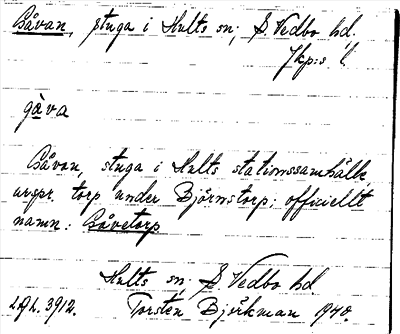 Gåvan, stuga i Hults sn; S. Vedbo hd.
Jkp:s l.
gåva
Gåvan, stuga i Hults stationssamhälle,
urspr. torp under Björnstorp; officiellt
namn: Gåvetorp
Hults sn; S Vedbo hd
Torsten Björkman 1940.